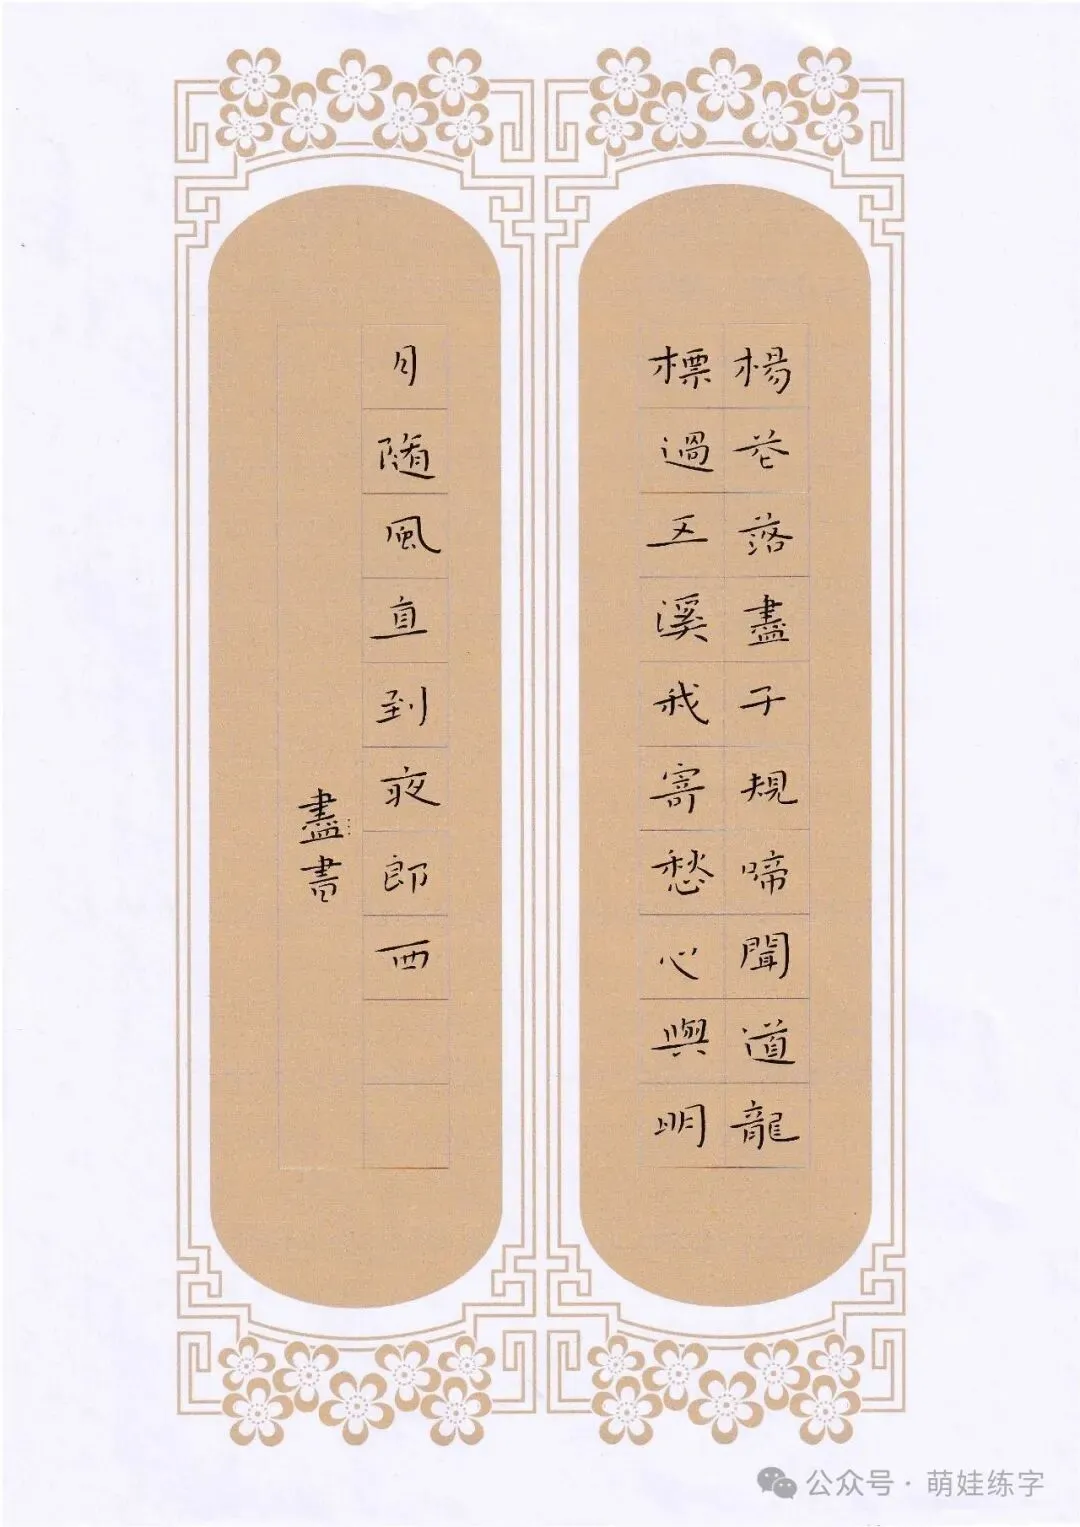 楊花落盡子規啼聞道龍
標過五溪我寄愁心與明
月隨風直到夜郎西
盡書
公众号 · 萌娃练字